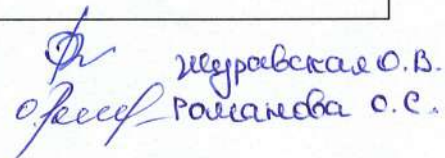 Журавская О.В.
Романова О.С.